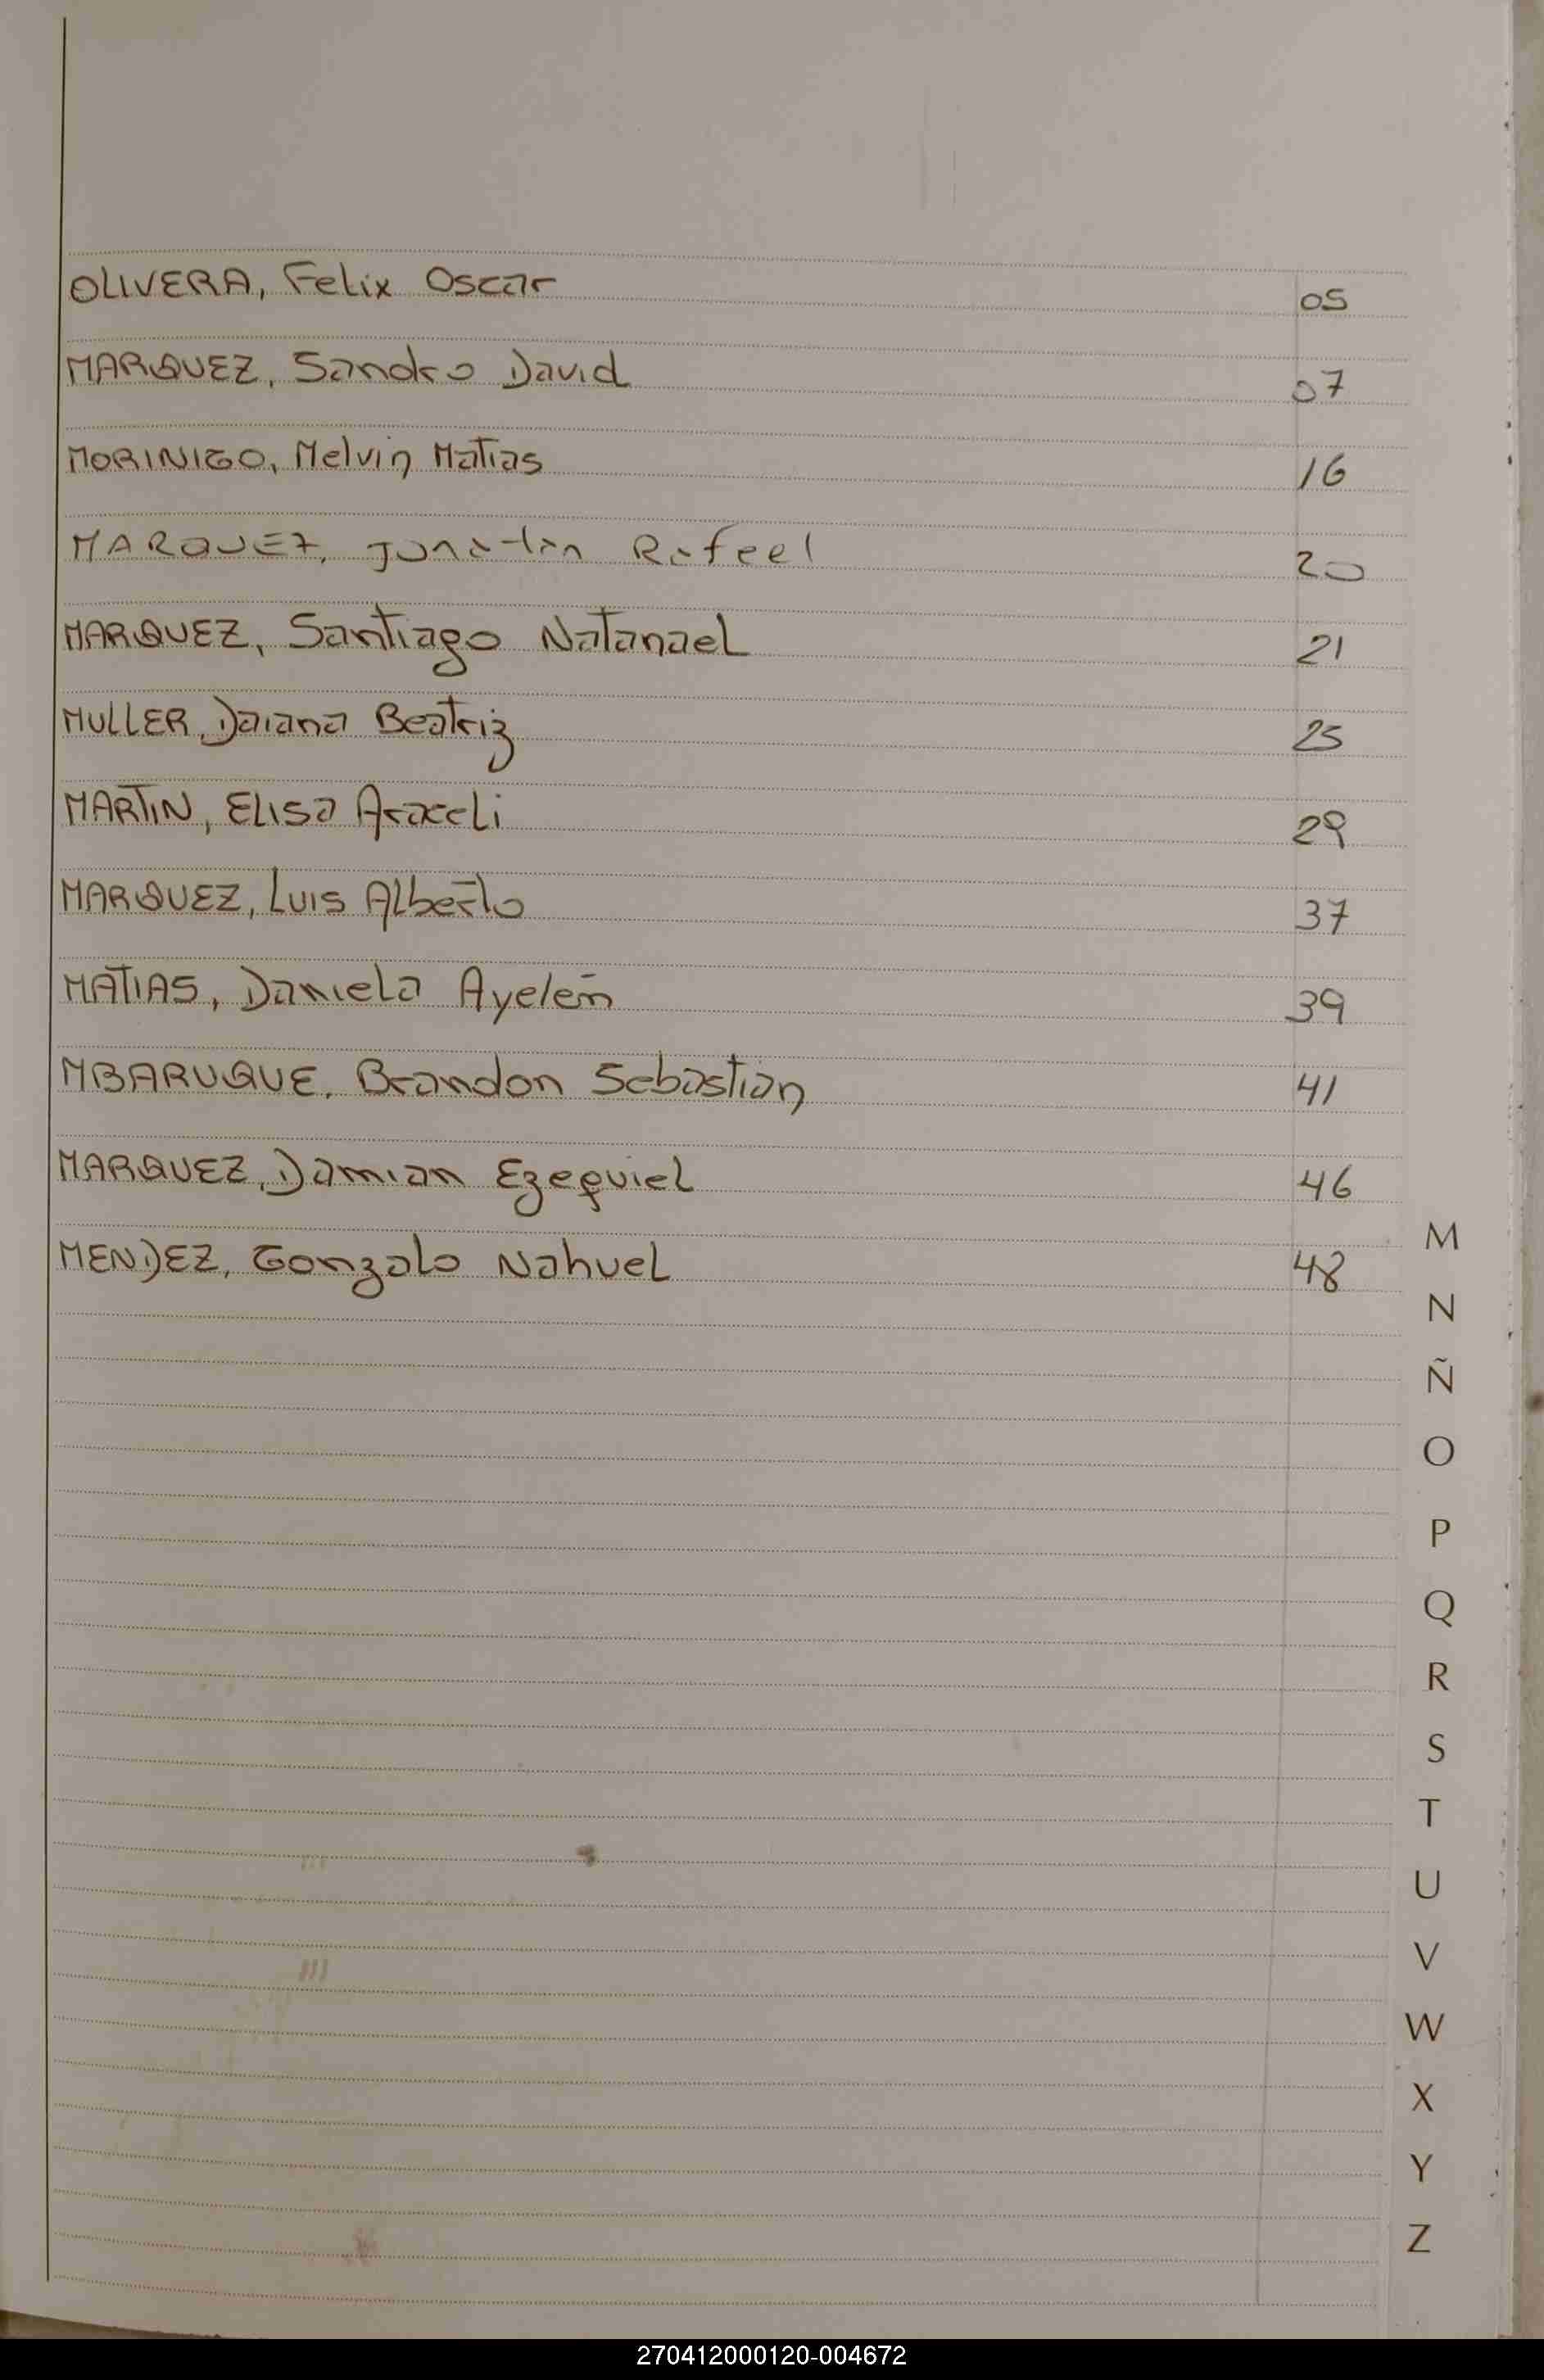 OLIVERA, Felix Oscar 05
MARQUEZ, Sandro David 07
MORINIGO, Melvin Matias 16
MARQUEZ, Jonatan Rafael 20
MARQUEZ, Santiago Natanael 21
MULLER, Daiana Beatriz 25
MARTIN, Elisa Araceli 29
MARQUEZ, Luis Alberto 37
MATIAS, Daniela Ayelén 39
MBARUQUE, Brandon Sebastian 41
MARQUEZ, Damian Ezequiel 46
MENDEZ, Gonzalo Nahuel 48
M
N
Ñ
O
P
Q
R
S
T
U
V
W
X
Y
Z
270412000120-004672